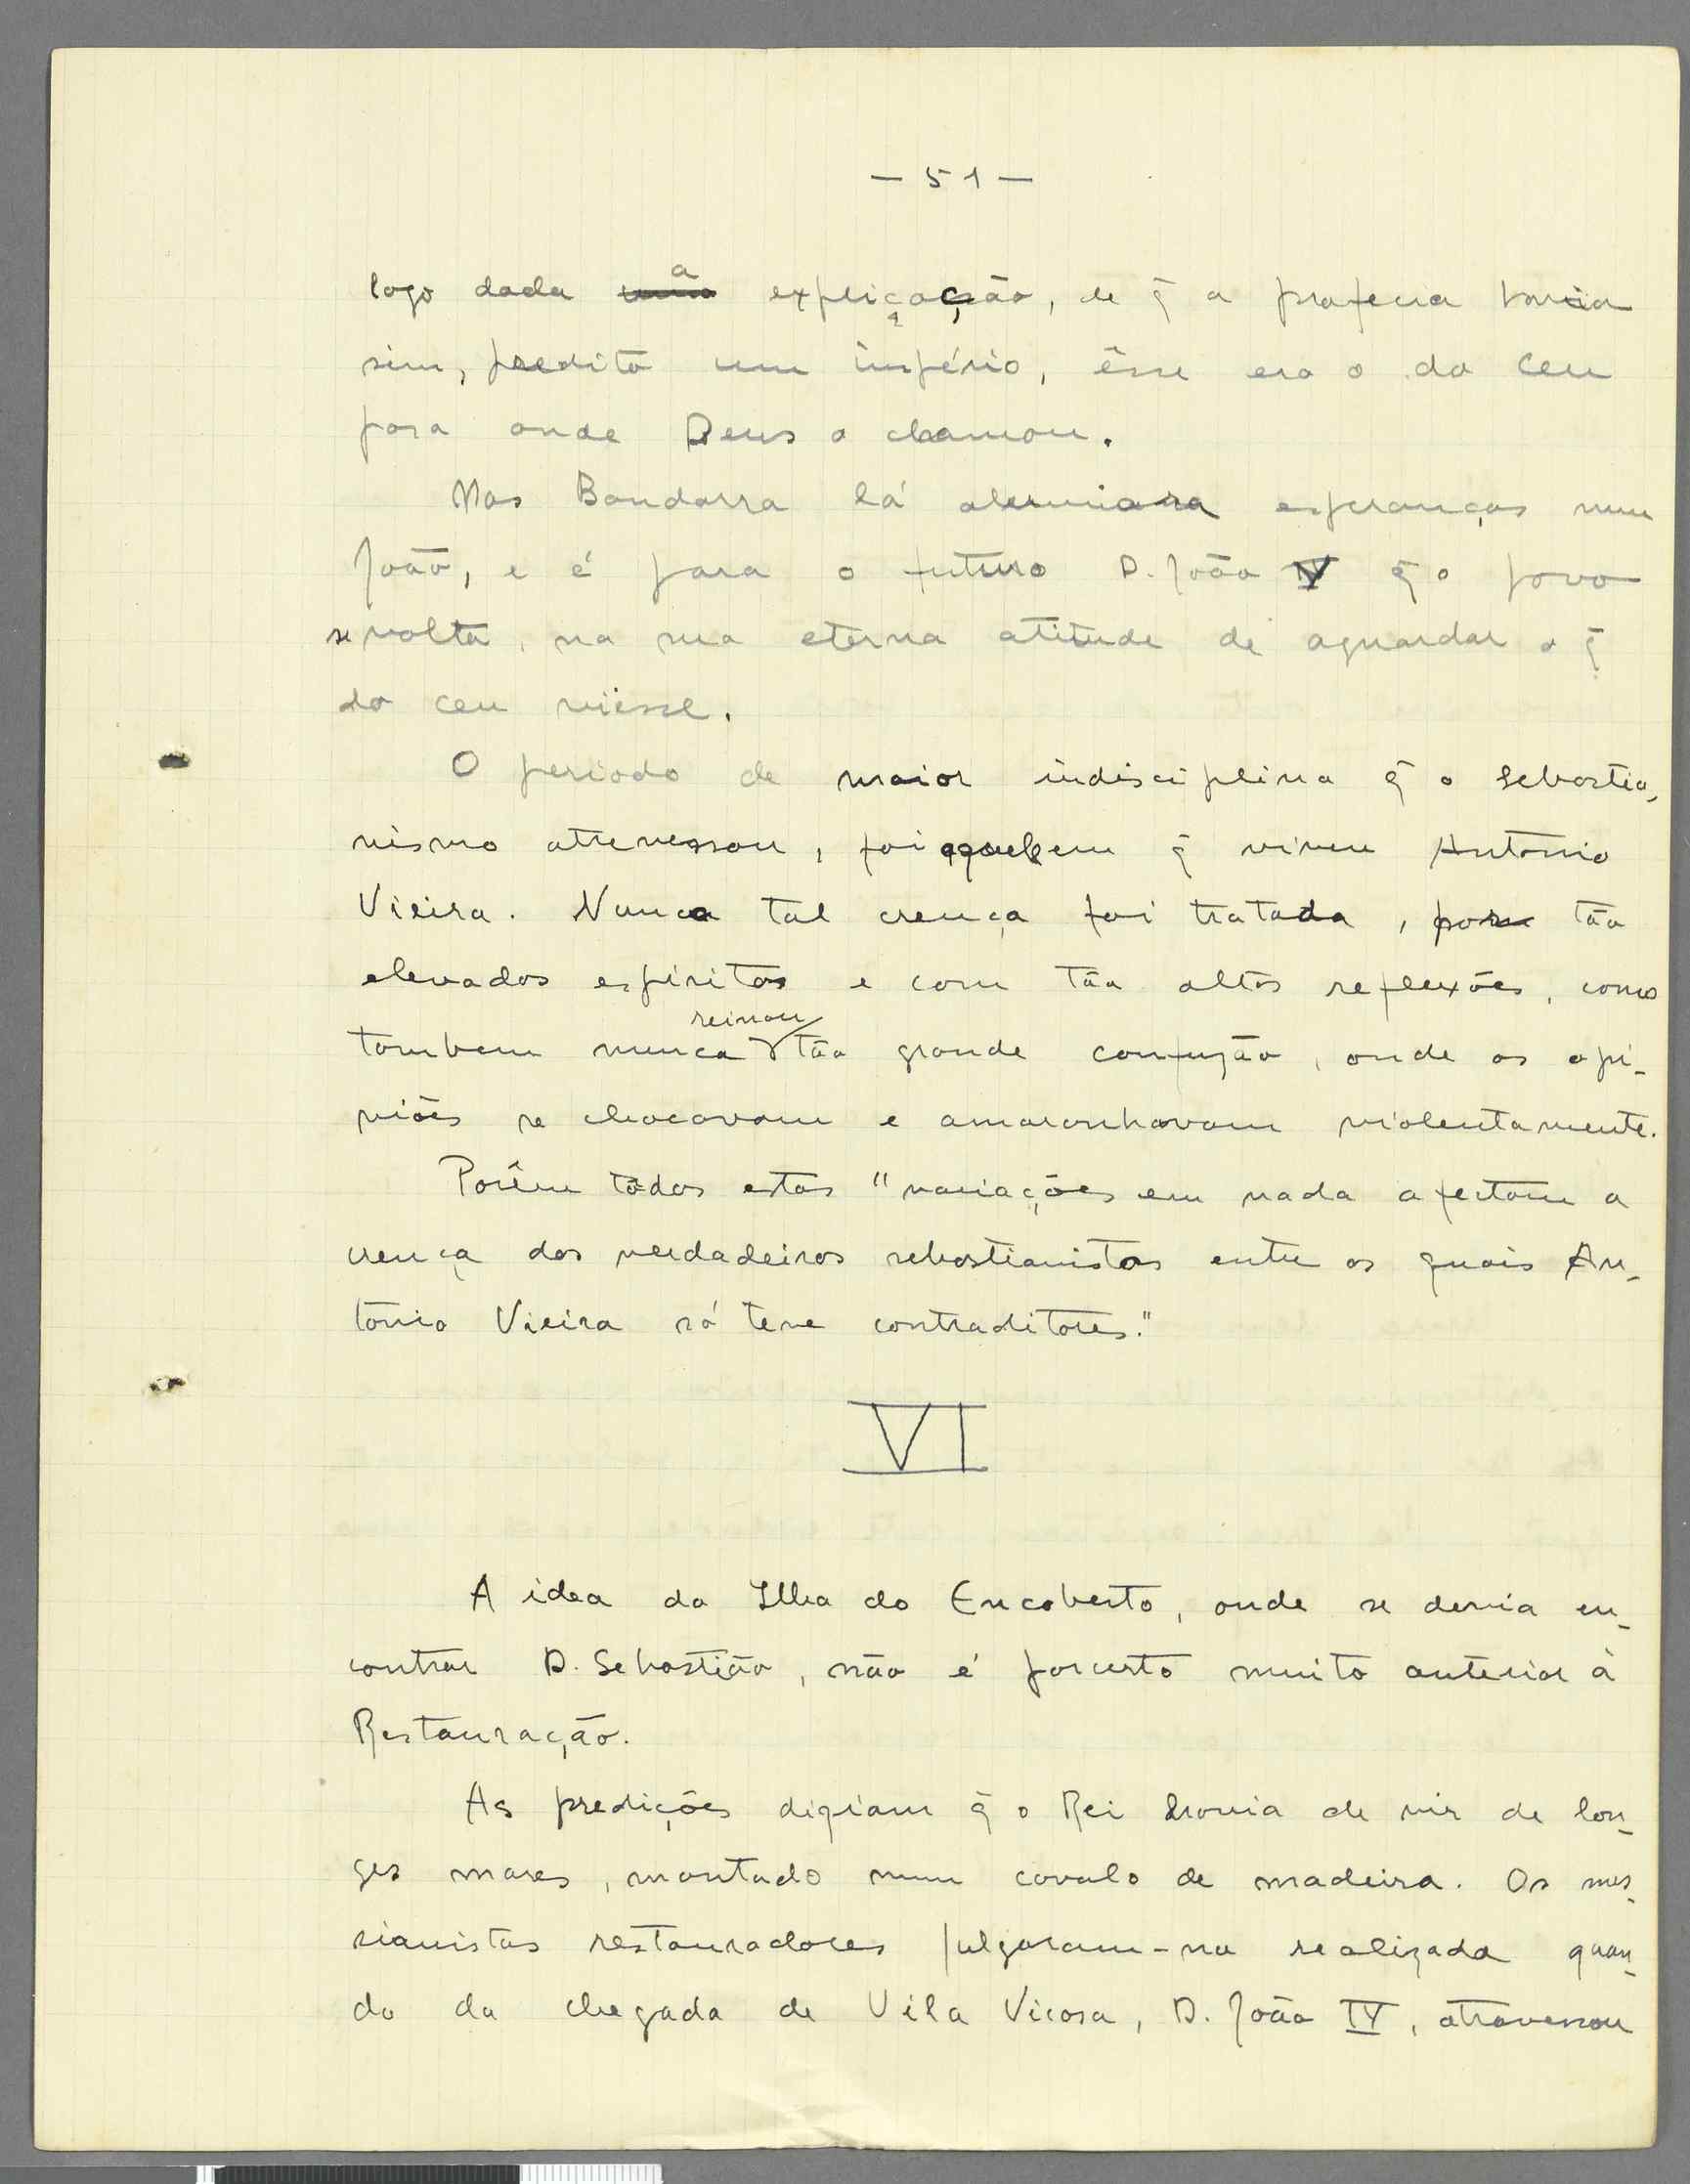 — 51 —
logo dada a explicação, de q̃ a profecia havia
sim, predito um império, êsse era o do Ceu
para onde Deus o chamou.
Mas Bandarra lá alumiara esperanças num
João, e é para o futuro D. João IV q̃ o povo
se volta, na sua eterna atitude de aguardar o q̃
do ceu viesse.
O periodo de maior indisciplina q̃ o Sebastia-
nismo atravessou, foi aquele em q̃ viveu António
Vieira. Nunca tal crença foi tratada, por tão
elevados espiritos e com tão altas reflexões, como
tambem nunca reinou tão grande confuzão, onde as opi-
niões se chocavam e amaranhavam violentamente.
Porêm tôdas estas "variações em nada afectam a
crença dos verdadeiros sebastianistas entre os quais An-
tonio Vieira só teve contraditores."
VI
A idea da Ilha do Encoberto, onde se devia en-
contrar D. Sebastião, não é porcerto muito anterior à
Restauração.
As predições diziam q̃ o Rei havia de vir de lon-
ges mares, montado num cavalo de madeira. Os mes-
sianistas restauradores julgaram-na realizada quan-
do da chegada de Vila Vicosa, D. João IV, atravessou